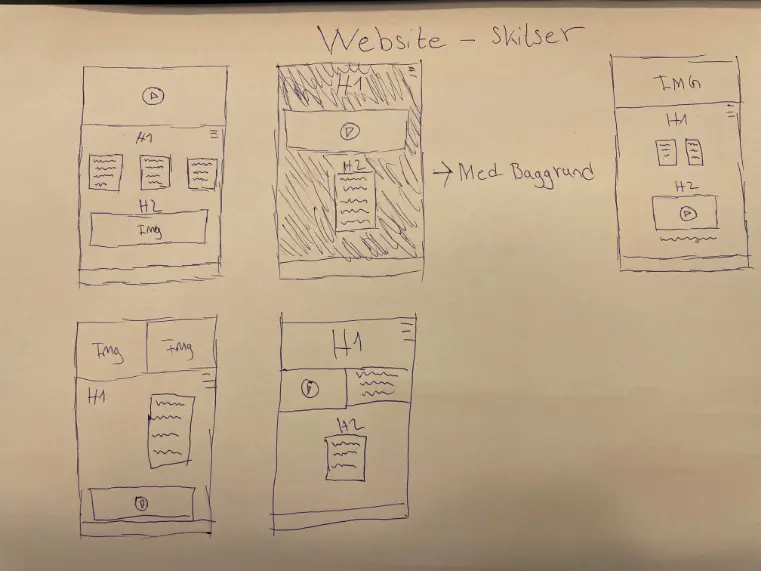 Website - skitser
H1
H2
Img
H1
H2
→ Med Baggrund
IMG
H1
H2
Img
Img
H1
H1
H2